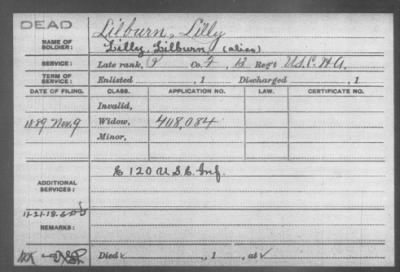 DEAD
NAME OF SOLDIER: Lilburn, Lilly
Lilly, Lilburn, (alias)
SERVICE: Late rank, P Co. F, 13 Reg't U.S.C.H.A.
TERM OF SERVICE: Enlisted , 1 Discharged , 1
DATE OF FILING. CLASS. APPLICATION NO. LAW. CERTIFICATE NO.
Invalid,
1889 Nov. 9 Widow, 408,084
Minor,
ADDITIONAL SERVICES: E 120 U.S.C. Inf.
REMARKS:
Died , 1 , at